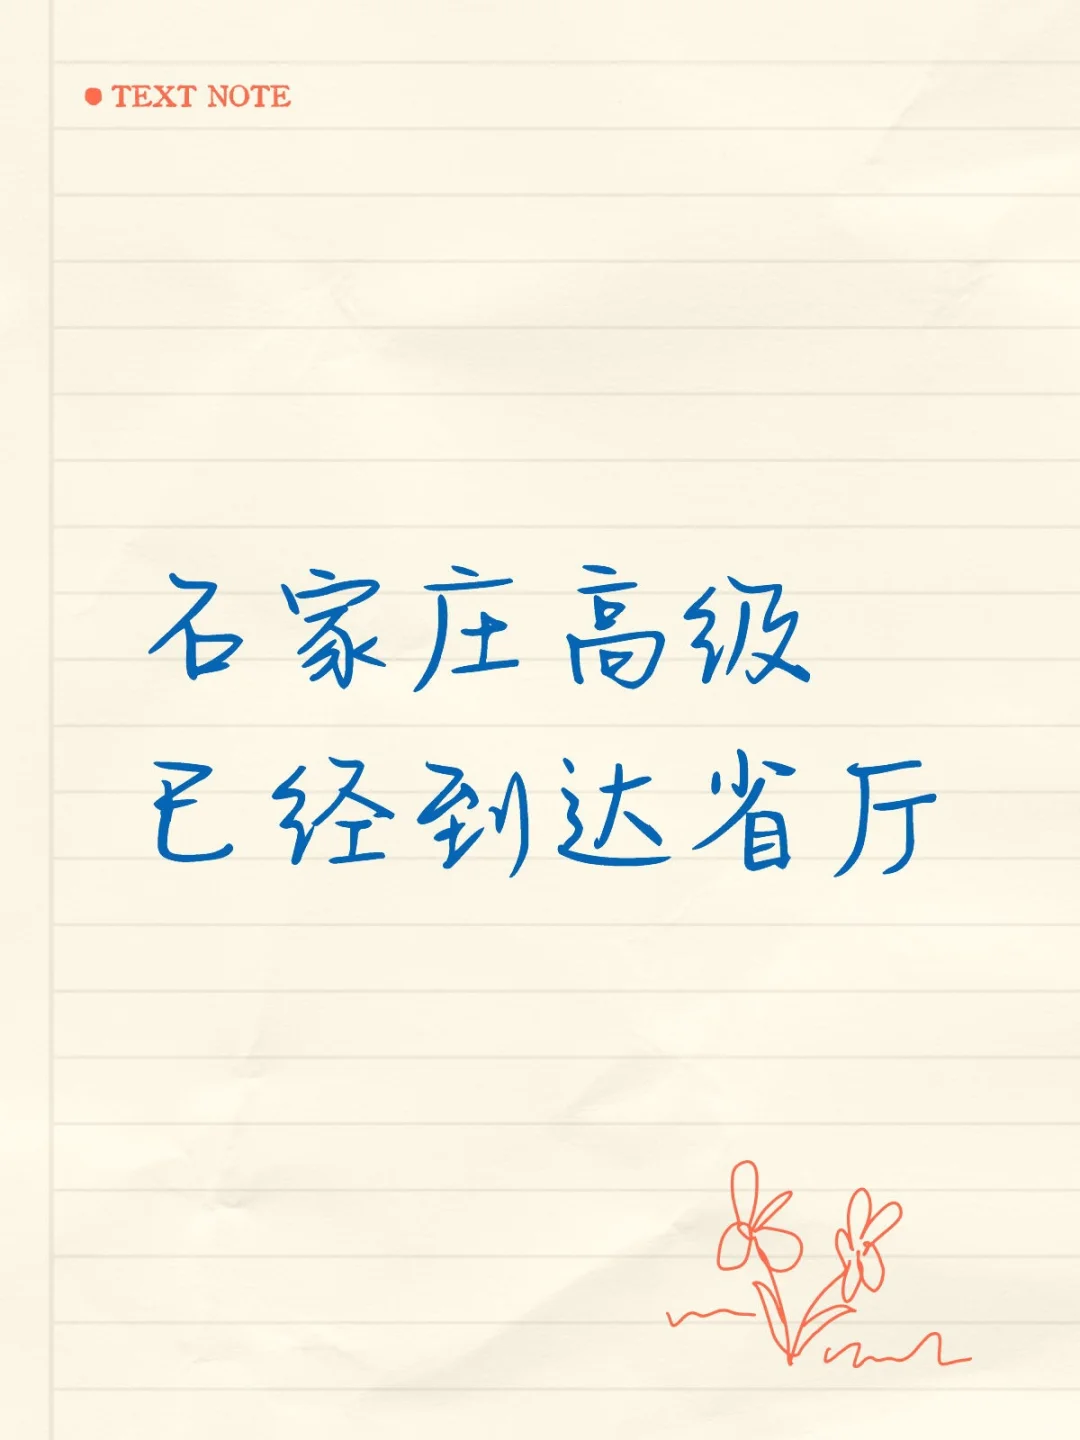 TEXT NOTE
石家庄高级
已经到达省厅